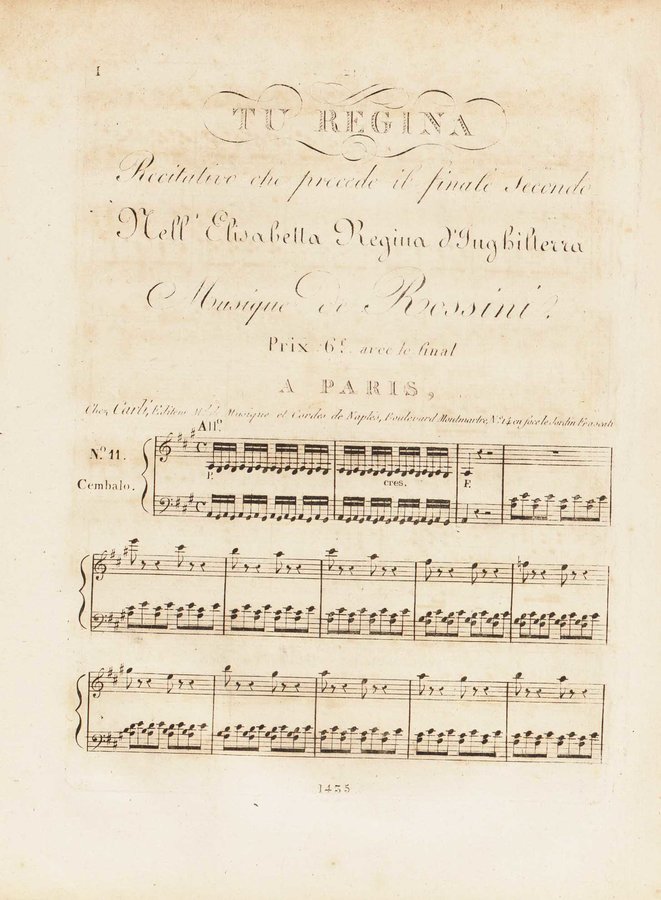 1
TU REGINA
Recitativo che precede il finale Secondo
Nell' Elisabetta Regina d'Inghilterra
Musique de Rossini.
Prix 6f. avec le final
A PARIS,
Chez Carli, Editeur Md. de Musique et Cordes de Naples, Boulevard Montmartre, No. 14 en face le Jardin Frascati
Allo.
No. 11.
Cembalo.
F. cres. F.
1435